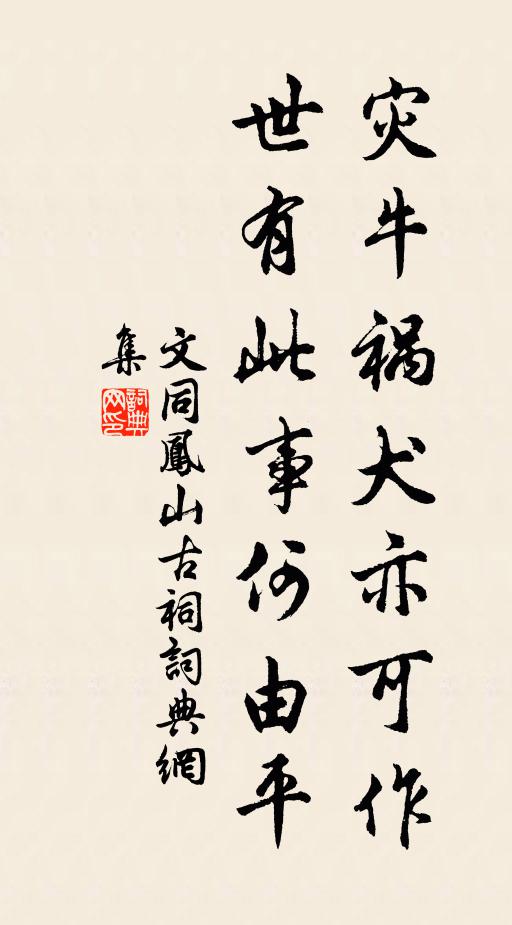 灾牛祸犬亦可作
世有此事何由平
文同鳳山古祠詞典網
集
詞典
网印